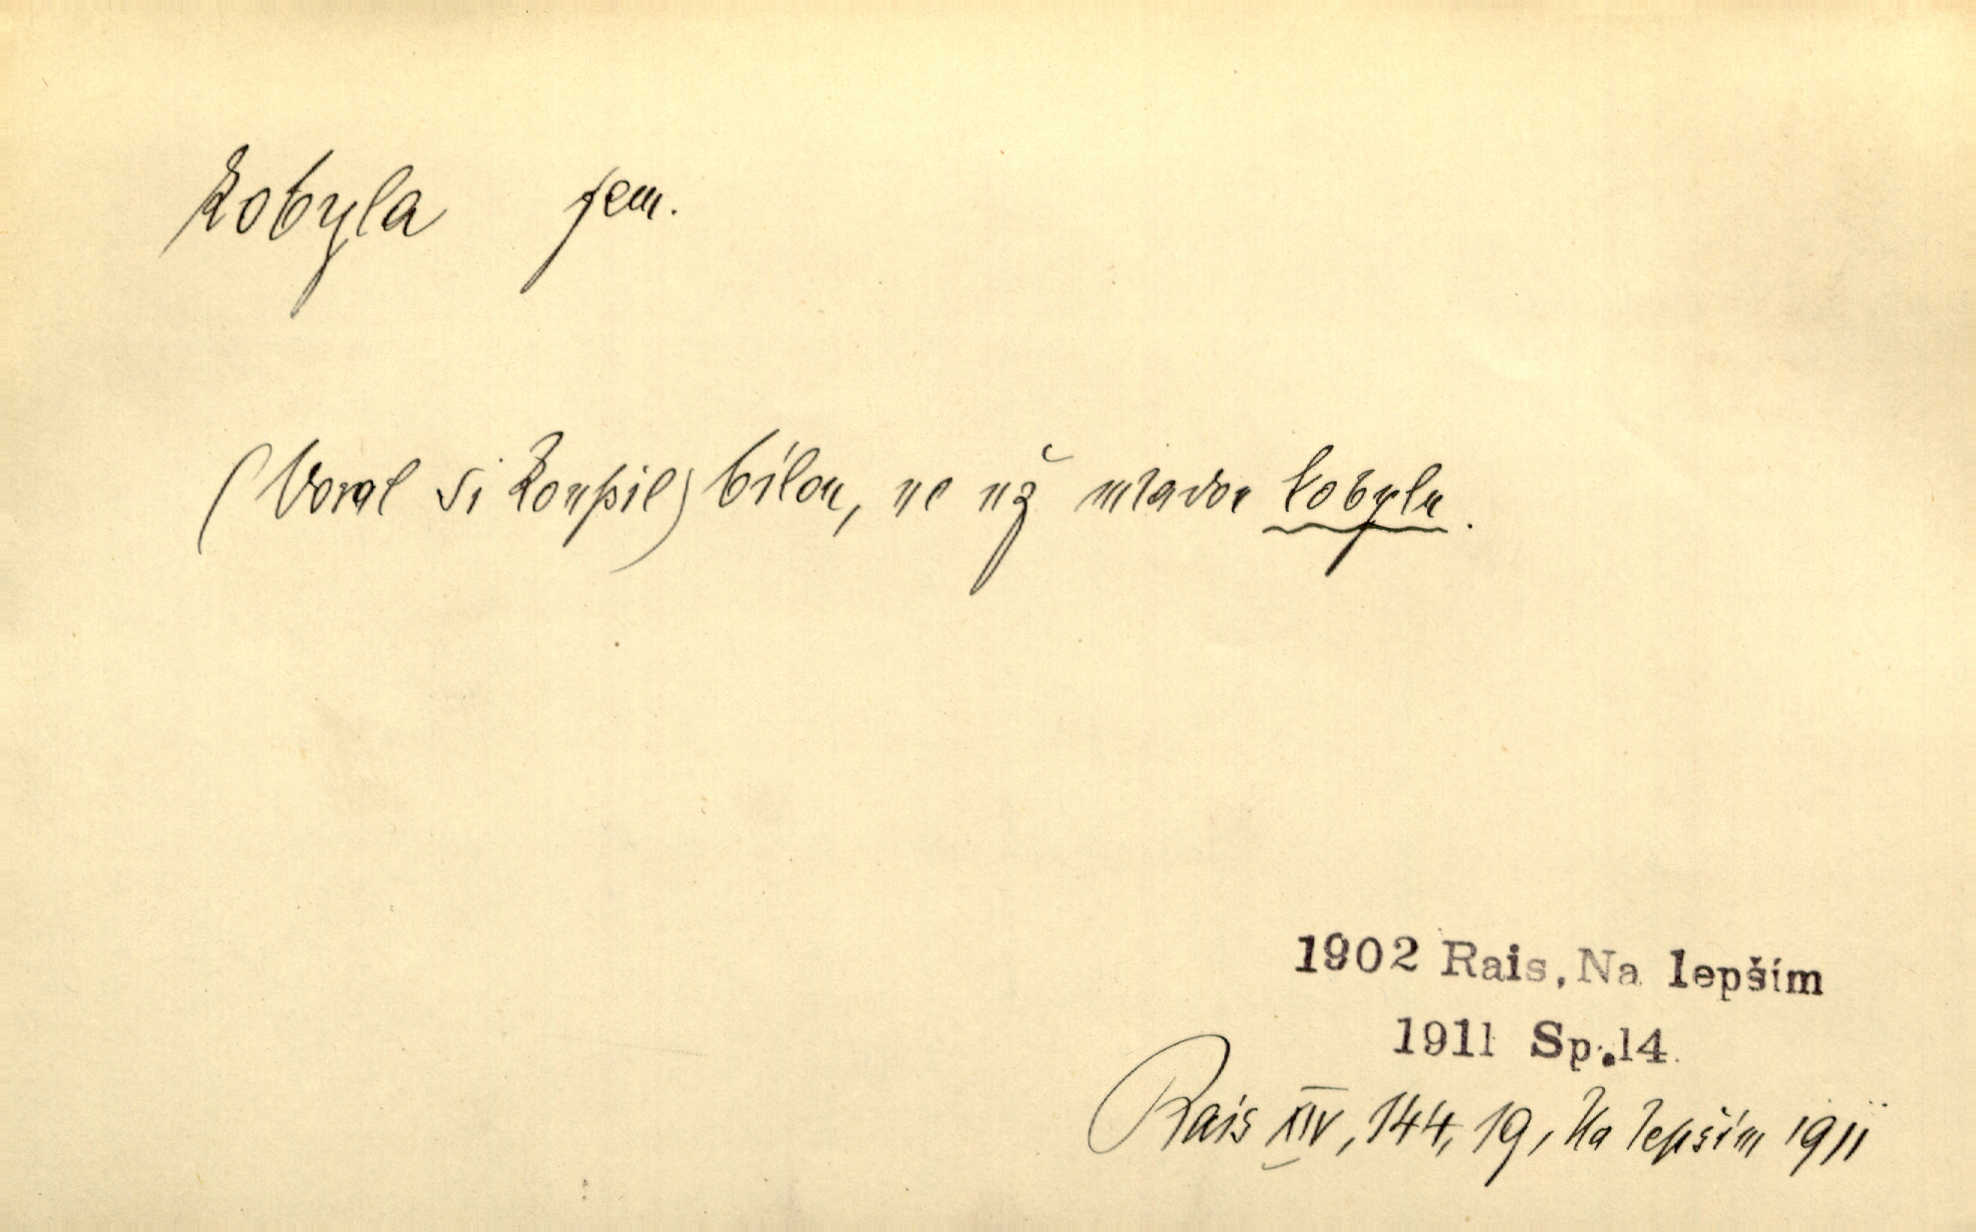 kobyla fem.
(Voral si koupil) bílou, ne už mladou kobylu.
1902 Rais, Na lepším
1911 Sp.14.
Rais XIV, 144, 19, Na lepším 1911